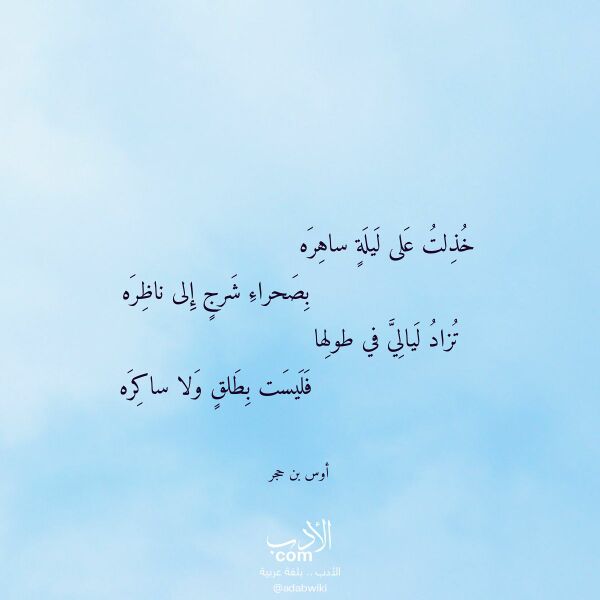 خُذِلتُ عَلى لَيلَةٍ ساهِرَه
بِصَحراءِ شَرجٍ إِلى ناظِرَه
تُزادُ لَيالِيَّ في طولِها
فَلَيسَت بِطَلقٍ وَلا ساكِرَه
أوس بن حجر
الأدب
com
الأدب .. بلغة عربية
@adabwiki